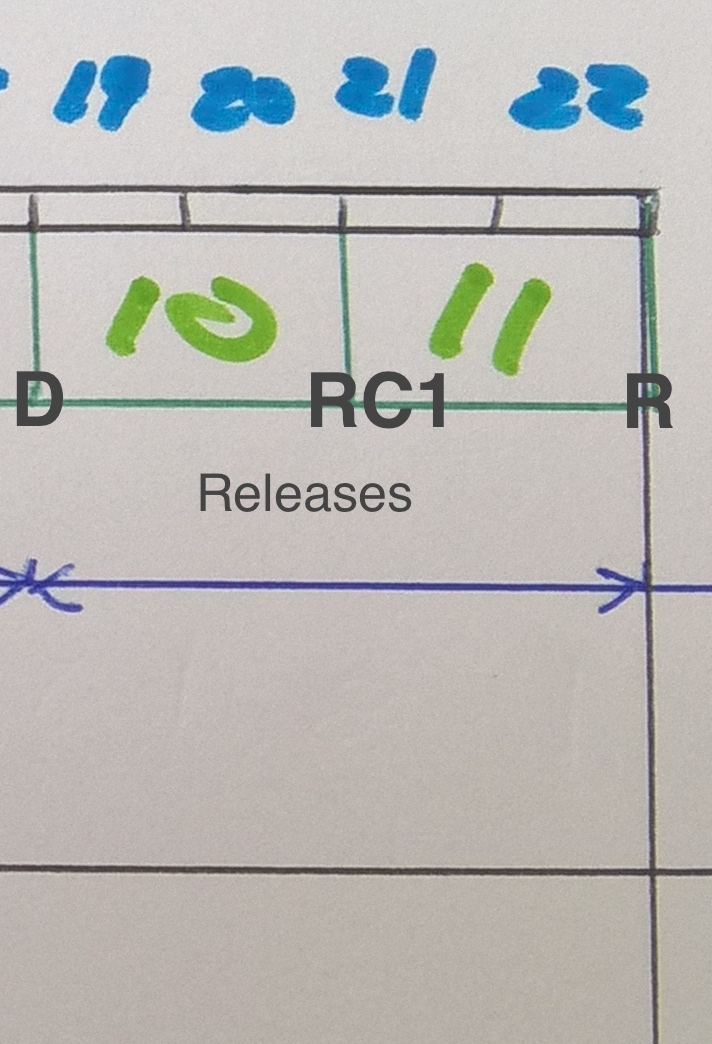 19 20 21 22
10 11
D RC1 R
Releases